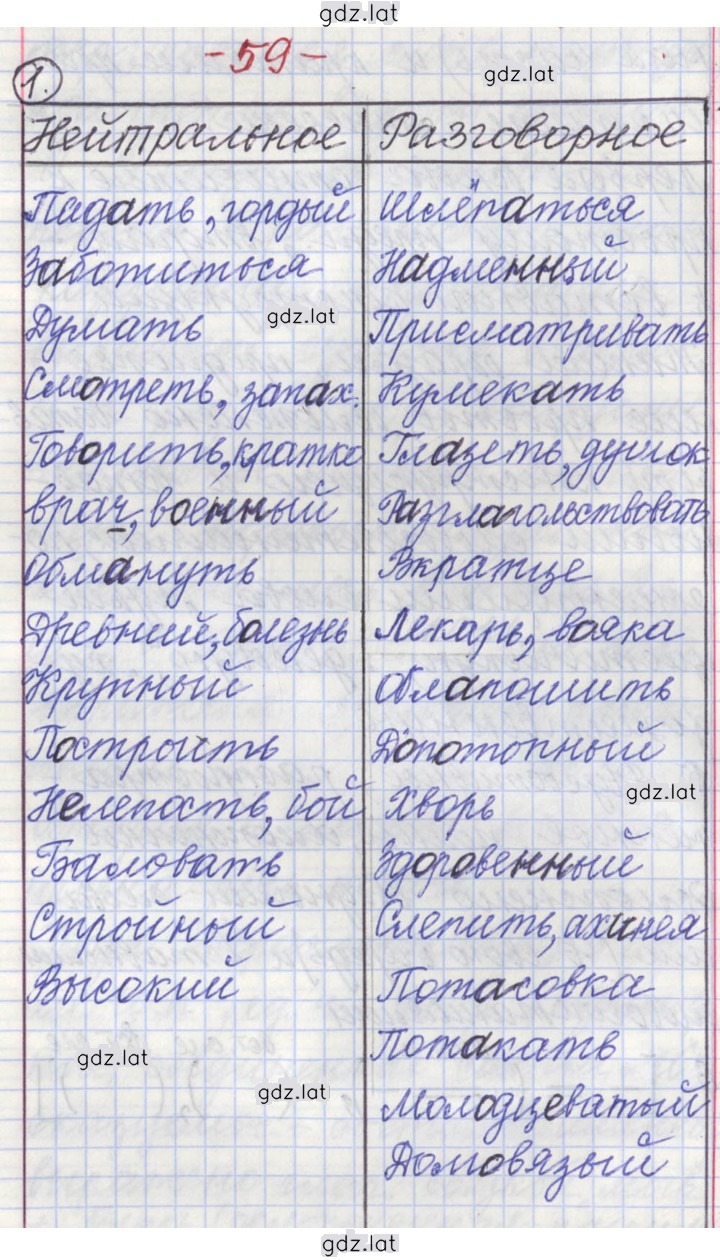 gdz.lat
-59-
1.
gdz.lat
Нейтральное Разговорное
Падать, гордый Шлёпаться
Заботиться Надменный
Думать gdz.lat Присматривать
Смотреть, запах. Кумекать
Говорить, кратко Глазеть, душок
врач, военный Разглагольствовать
Обмануть Вкратце
Древний, болезнь Лекарь, вояка
Крупный Облапошить
Построить Допотопный
gdz.lat
Нелепость, бой Хворь
Баловать Здоровенный
Стройный Слепить, ахинея
Высокий Потасовка
Потакать
gdz.lat
gdz.lat
Молодцеватый
Домовязый
gdz.lat